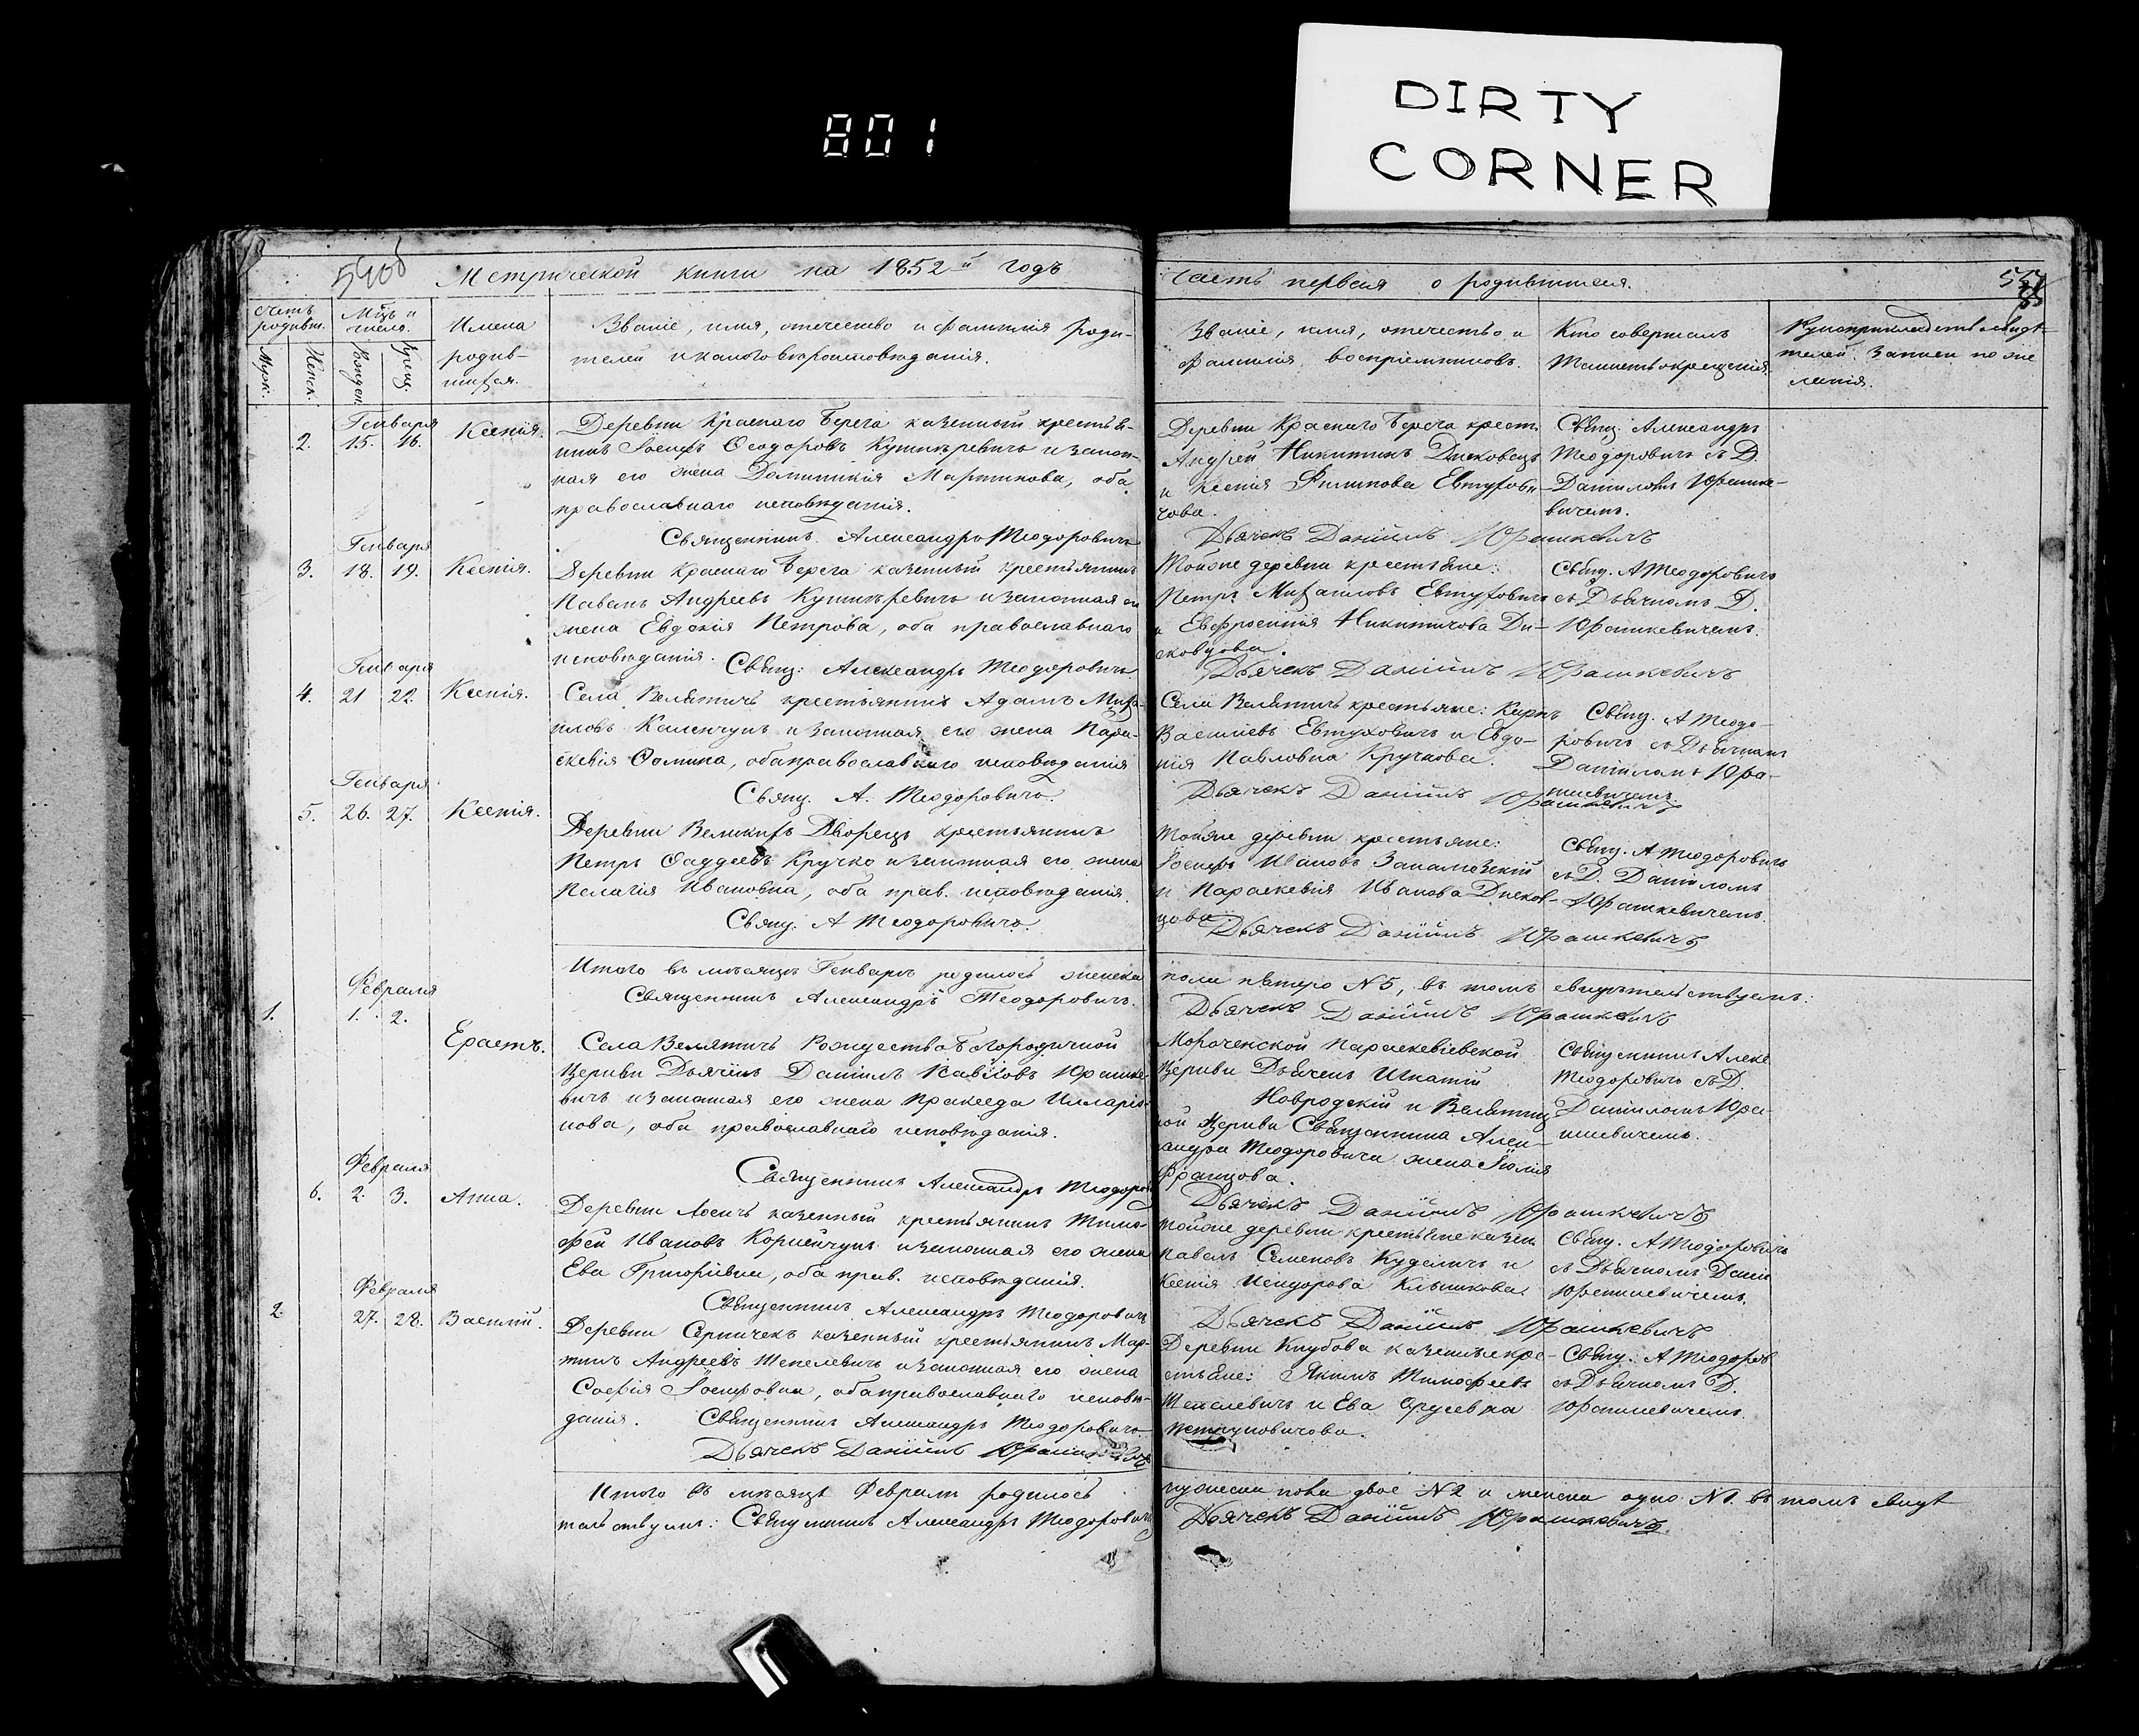 801
DIRTY
CORNER
Метрической книги на 1852й годъ
Часть первая о родившихся.
Счетъ родивш.
Муж.
Женск.
Мцъ и число.
Рожден.
Крещ.
Имена
родив-
шихся.
Званіе, имя, отечество и фамилія роди-
телей и какого вероисповѣданія.
Званіе, имя, отечество и
фамилія воспріемниковъ.
Кто совершалъ
Таинство крещенія.
Рукоприкладство свидѣ-
телей записи по же
ланія.
Генваря
2. 15. 16. Ксенія.
Деревни Краснаго Берега казенный крестья-
нинъ Іосифъ Ѳеодоровъ Кушнѣревичъ и закон-
ная его жена Доминикія Мартинова, оба
православнаго исповѣданія.
Священникъ Александръ Теодоровичъ
Деревни Краснаго Берега крест.
Андрей Никитинъ Дисковецъ
и Ксенія Филипова Евтухови-
чова.
Дьячекъ Даніилъ Юрашкевичъ
Свящ. Александръ
Теодоровичъ съ Д.
Даніиломъ Юрашке-
вичемъ.
Генваря
3. 18. 19. Ксенія.
Деревни Краснаго Берега казенный крестьянинъ
Павелъ Андреевъ Кушнѣревичъ и законная его
жена Евдокія Петрова, оба православнаго
исповѣданія. Свящ: Александръ Теодоровичъ
Тойже деревни крестьяне:
Петръ Михаиловъ Евтуховичъ
и Евфросинія Никитичова Ди-
сковцова.
Дьячекъ Даніилъ Юрашкевичъ
Свящ. А Теодоровичъ
съ Дьячкомъ Д.
Юрашкевичемъ.
Генваря
4. 21 22. Ксенія.
Села Велятичъ крестьянинъ Адамъ Миха-
иловъ Каленчукъ и законная его жена Пара-
скевія Ѳомина, оба православнаго исповѣданія
Свящ. А. Теодоровичъ.
Села Велятичъ крестьяне: Карпъ
Василіевъ Евтуховичъ и Евдо-
кія Павловна Кручкова.
Дьячекъ Даніилъ Юрашкевичъ
Свящ. А Теодо-
ровичъ съ Дьячкомъ
Даніиломъ Юра-
шкевичемъ
Генваря
5. 26. 27. Ксенія.
Деревни Великихъ Дворецъ крестьянинъ
Петръ Ѳаддеевъ Кручко и законная его жена
Пелагія Ивановна, оба прав. исповѣданія.
Свящ. А Теодоровичъ.
Тойже деревни крестьяне:
Іосифъ Ивановъ
и Параскевія Иванова Дисков-
цова.
Дьячекъ Даніилъ Юрашкевичъ
Свящ. А Теодоровичъ
съ Д. Даніиломъ
Юрашкевичемъ.
Итого въ мѣсяцѣ Генварѣ родилось женска
пола пятеро N5, въ томъ свидѣтельствуемъ:
Священникъ Александръ Теодоровичъ.
Дьячекъ Даніилъ Юрашкевичъ
Февраля
1. 1. 2.
Ерастъ.
Села Велятичъ Рождество Богородичной
Церкви Дьячекъ Даніилъ Юрашке-
вичъ и законная его жена Праксѣда Илларіо-
нова, оба православнаго исповѣданія.
Священникъ Александръ Теодоров
Мороченской Параскевіевской
Церкви Дьячекъ Игнатій
и Велятиц
кой Церкви Священника Алек-
сандра Теодоровича жена Юлія
Францова.
Дьячекъ Даніилъ Юрашкевичъ
Священникъ Алекс
Теодоровичъ съ Д.
Даніиломъ Юра-
шкевичемъ.
Февраля
6. 2. 3. Анна.
Деревни Лосичъ казенный крестьянинъ Тимо-
фей Ивановъ Корнейчукъ и законная его жена
Ева Григоріевна, оба прав. исповѣданія.
Священникъ Александръ Теодоровичъ
Тойже деревни крестьяне казен.
Павелъ Семеновъ Куделичъ и
Ксенія Исидорова Клышкова.
Дьячекъ Даніилъ Юрашкевичъ
Свящ. А Теодоровичъ
съ Дьячкомъ Даніи
Юрашкевичемъ.
Февраля
2. 27. 28. Василій.
Деревни Серничекъ казенный крестьянинъ Мар-
тинъ Андреевъ Шепелевичъ и законная его жена
Софія Іосифовна, оба православнаго исповѣ-
данія. Священникъ Александръ Теодоровичъ
Дьячекъ Даніилъ Юрашкевичъ
Деревни Кнубова казенные кре-
стьяне: Якимъ Тимофеевъ
Шепелевичъ и Ева
Петруковичова.
Свящ. А Теодоров
съ Дьячкомъ Д.
Юрашкевичемъ.
Итого въ мѣсяцѣ Февралѣ родилось
мужеска пола двое N2 и женска одно N1. въ томъ свидѣ
тельствуемъ: Священникъ Александръ Теодоровичъ
Дьячекъ Даніилъ Юрашкевичъ